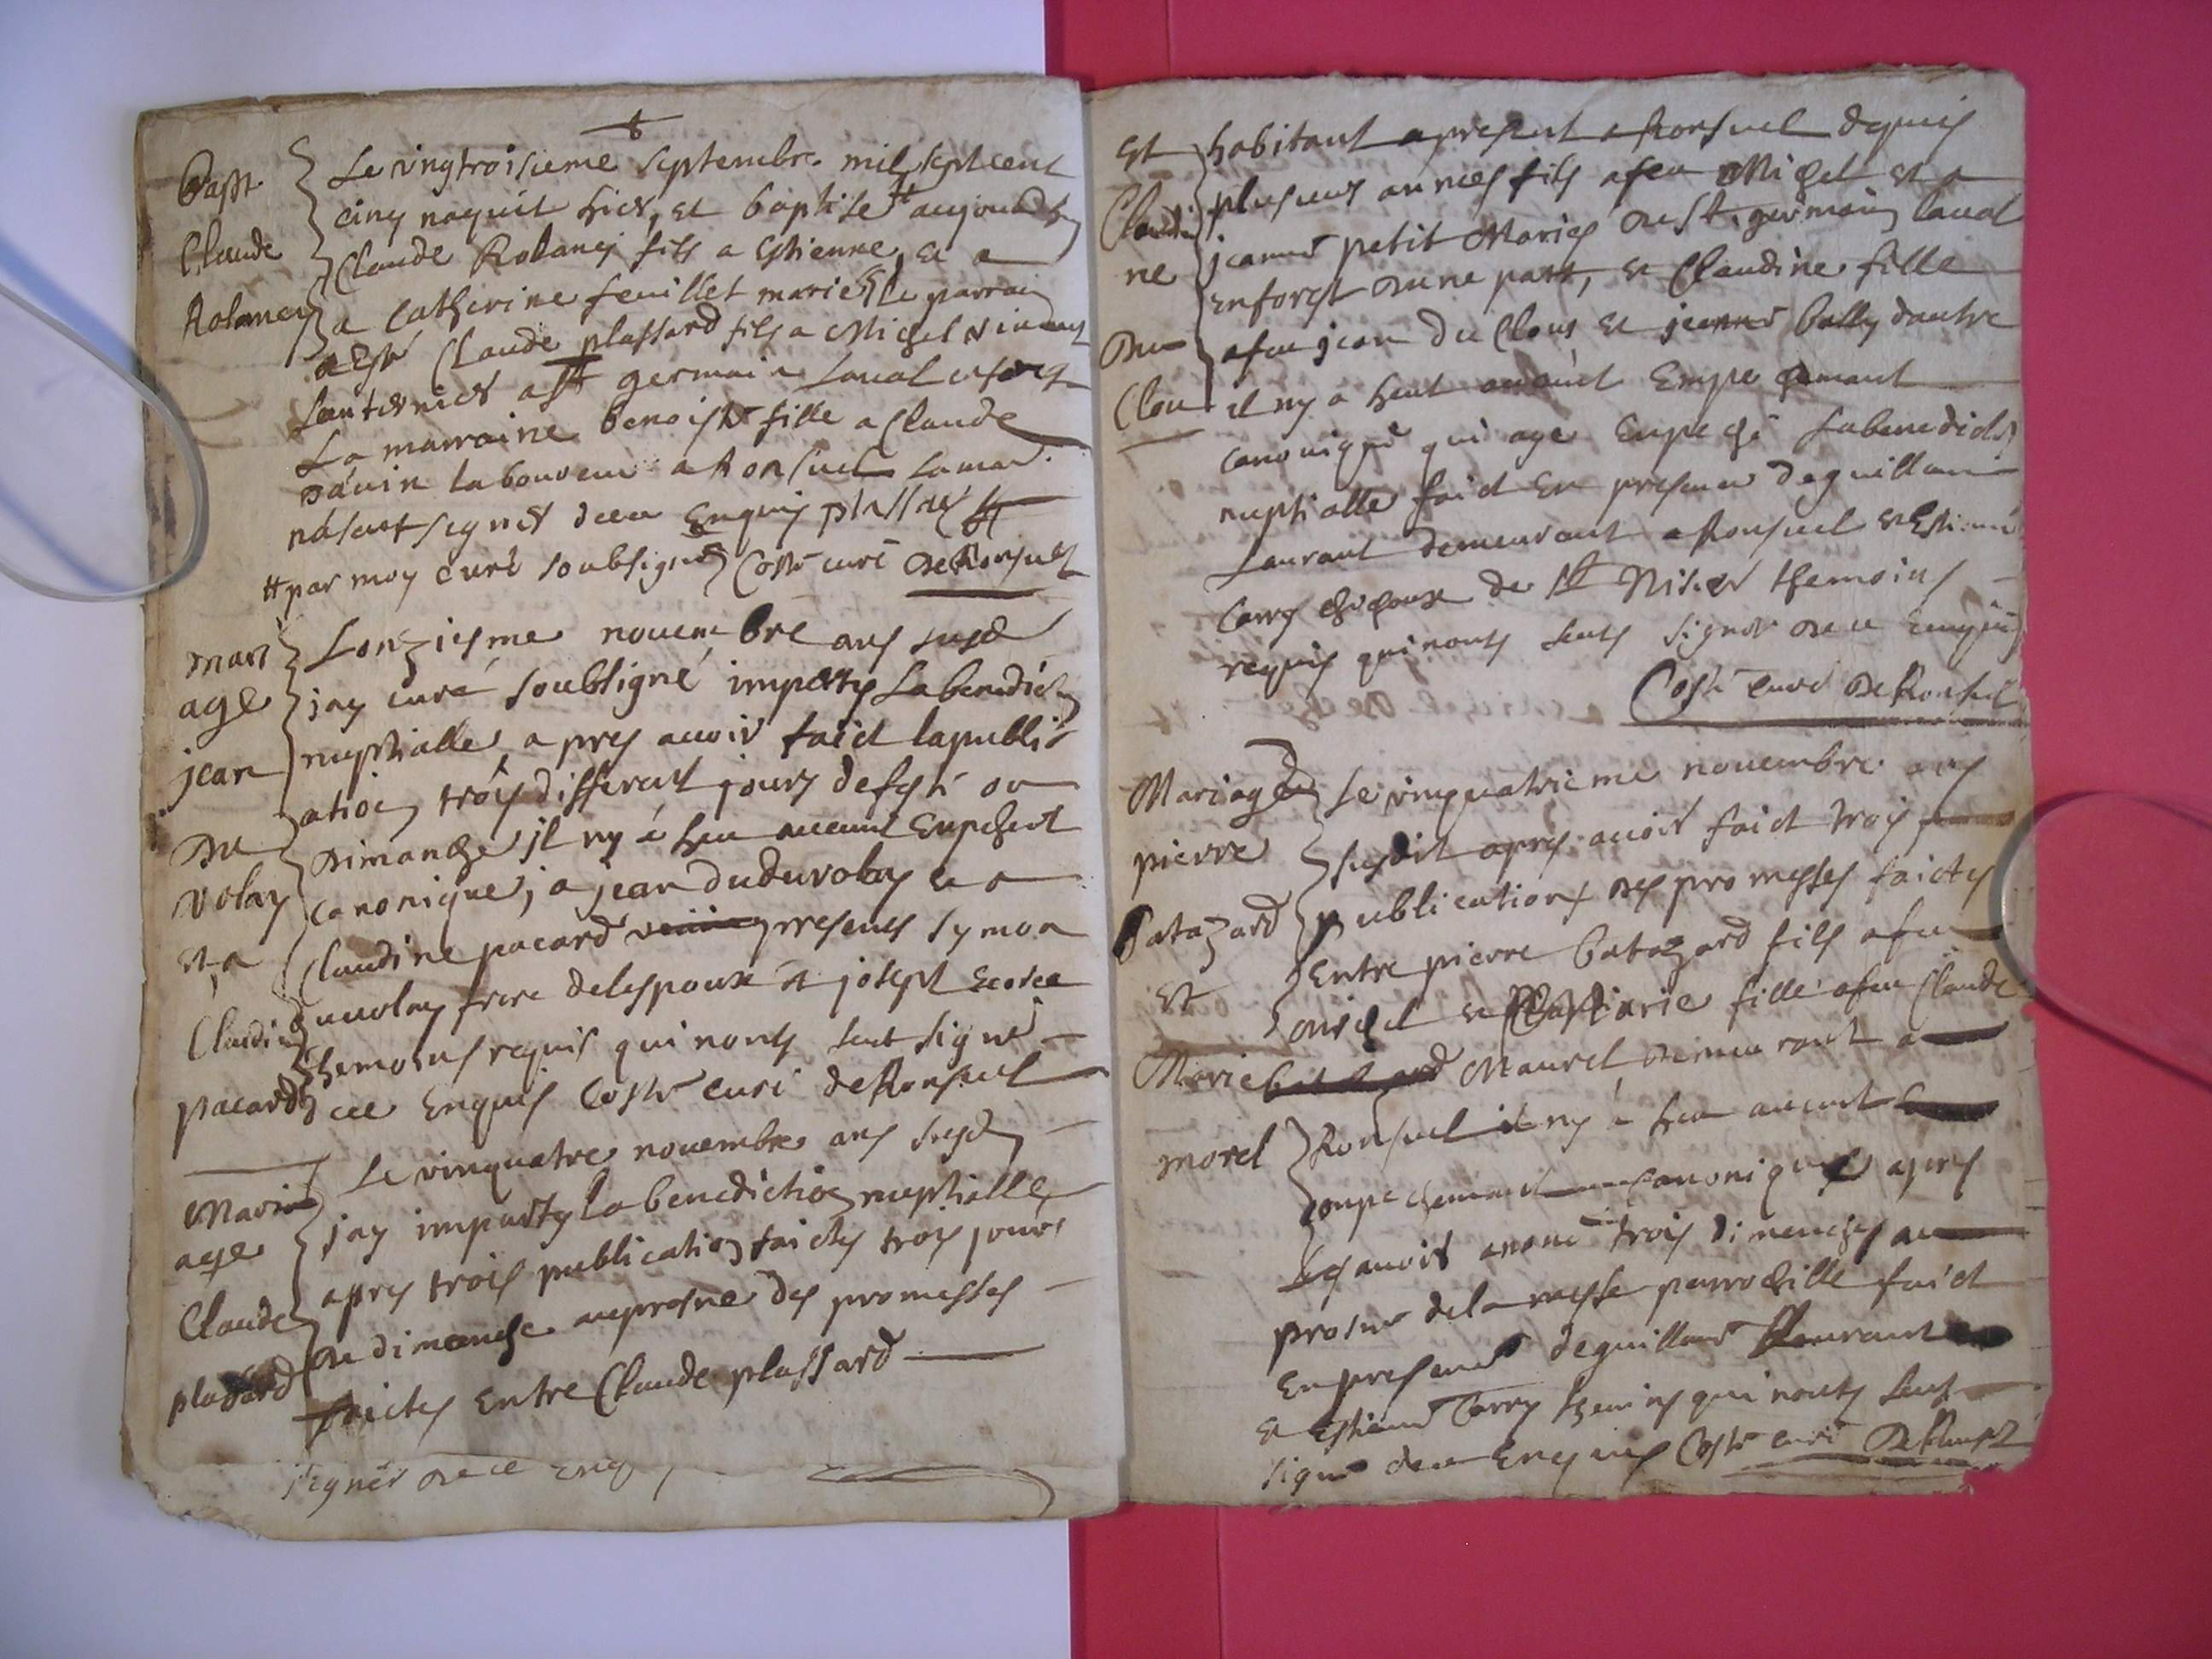 Bapt.
Claude
Rolancy
Le vingtroisieme septembre mil sept cent
cinq naquit hier, et baptise aujourdhuy
Claude Rolancy fils a Estienne, et a
a Catherine feuillet mariés le parrain
a esté Claude plassard fils a Michel
a St germain laval
La marraine benoiste fille a Claude
laboureur a Ronsuel
nasont signer dece Enquis plassard
par moy curé soubsigné Coste curé de Ronsuel
mari
age
jean
Du
volay
et a
Claudine
pacard
Lonziesme novembre ans susd
jay curé soubsigné imparty La benediction
nuptialle, apres avoir faict la public
ation trois different jours de feste ou
Dimanche il ny a heu aucune Enpeschent
canonique, a jean du duvolay et a
Claudine pacard presents symon
duvolay frere delespoux et joseph
themoins requis qui nonts sceut signé
ce Enquis Coste curé de Ronsuel
Mari
age
Claude
plassard
Le vinquatre novembre ans susd
jay imparty la benediction nuptialle
apres trois publication faictes trois jours
de dimanche auprosne des promesses
faictes Entre Claude plassard
signer de ce enq
Et
Claudi
ne
Du
Clou
habitant apresent a Ronsuel depuis
plusieurs annees fils afeu Michel et a
jeanne petit Maries de St. germain laval
Enforest dune part, et Claudine fille
afeu jean du Clous et jeanne bally dautre
il ny a heut aucuct Empechemant
canonique qui aye Enpeché Labenedictio
nuptialle faict En presence deguillaume
Laurant demeurant a Ronsuel et Estienne
Carry de St Nisier themoins
requis qui nonts sceuts signer de ce enquis
Coste curé de Ronsuel
Mariage
pierre
batazard
Et
Marie
morel
Le vinquatrieme novembre ans
susdit apres avoir faict trois
publications des promesses faictes
Entre pierre batazard fils afeu
et Marie fille afeu Claude
Maurel demeurant a
Ronsuel il ny a heu aucunt
enpechemant canonique apres
les avoir anoncé trois dimenches au
prosne dela messe parrochille faict
En presence deguillaume Laurant
et Estienne Carry themins qui nonts sceut
signé dece Enquis Coste curé de Ronsuel